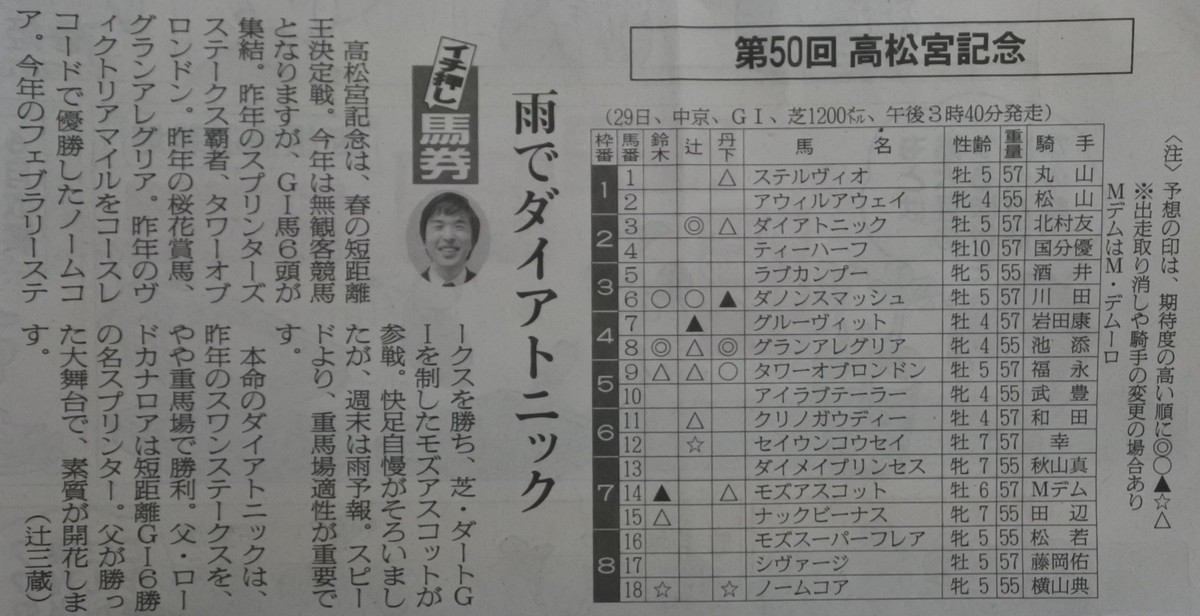 第50回 高松宮記念
(29日、中京、GⅠ、芝1200㍍、午後3時40分発走)
枠番 馬番 鈴木 辻 丹下 馬名 性齢 重量 騎手
1 1 △ ステルヴィオ 牡5 57 丸山
2 アウィルアウェイ 牝4 55 松山
2 3 ◎ △ ダイアトニック 牡5 57 北村友
4 ティーハーフ 牡10 57 国分優
3 5 ラブカンプー 牝5 55 酒井
6 ○ ○ ▲ ダノンスマッシュ 牡5 57 川田
4 7 ▲ グルーヴィット 牡4 57 岩田康
8 ◎ △ ◎ グランアレグリア 牝4 55 池添
5 9 △ △ ○ タワーオブロンドン 牡5 57 福永
10 アイラブテーラー 牝4 55 武豊
6 11 △ クリノガウディー 牡4 57 和田
12 ☆ セイウンコウセイ 牡7 57 幸
7 13 ダイメイプリンセス 牝7 55 秋山真
14 ▲ △ モズアスコット 牡6 57 Mデム
15 △ ナックビーナス 牝7 55 田辺
8 16 モズスーパーフレア 牝5 55 松若
17 シヴァージ 牡5 57 藤岡佑
18 ☆ ☆ ノームコア 牝5 55 横山典
〈注〉予想の印は、期待度の高い順に◎○▲☆△
※出走取り消しや騎手の変更の場合あり
MデムはM・デムーロ
雨でダイアトニック
イチ押し
馬券
高松宮記念は、春の短距離
王決定戦。今年は無観客競馬
となりますが、GⅠ馬6頭が
集結。昨年のスプリンターズ
ステークス覇者、タワーオブ
ロンドン。昨年の桜花賞馬、
グランアレグリア。昨年のヴ
ィクトリアマイルをコースレ
コードで優勝したノームコ
ア。今年のフェブラリーステ
ークスを勝ち、芝・ダートG
Ⅰを制したモズアスコットが
参戦。快足自慢がそろいまし
たが、週末は雨予報。スピー
ドより、重馬場適性が重要で
す。
本命のダイアトニックは、
昨年のスワンステークスを、
やや重馬場で勝利。父・ロー
ドカナロアは短距離GⅠ6勝
の名スプリンター。父が勝っ
た大舞台で、素質が開花しま
す。
(辻三蔵)